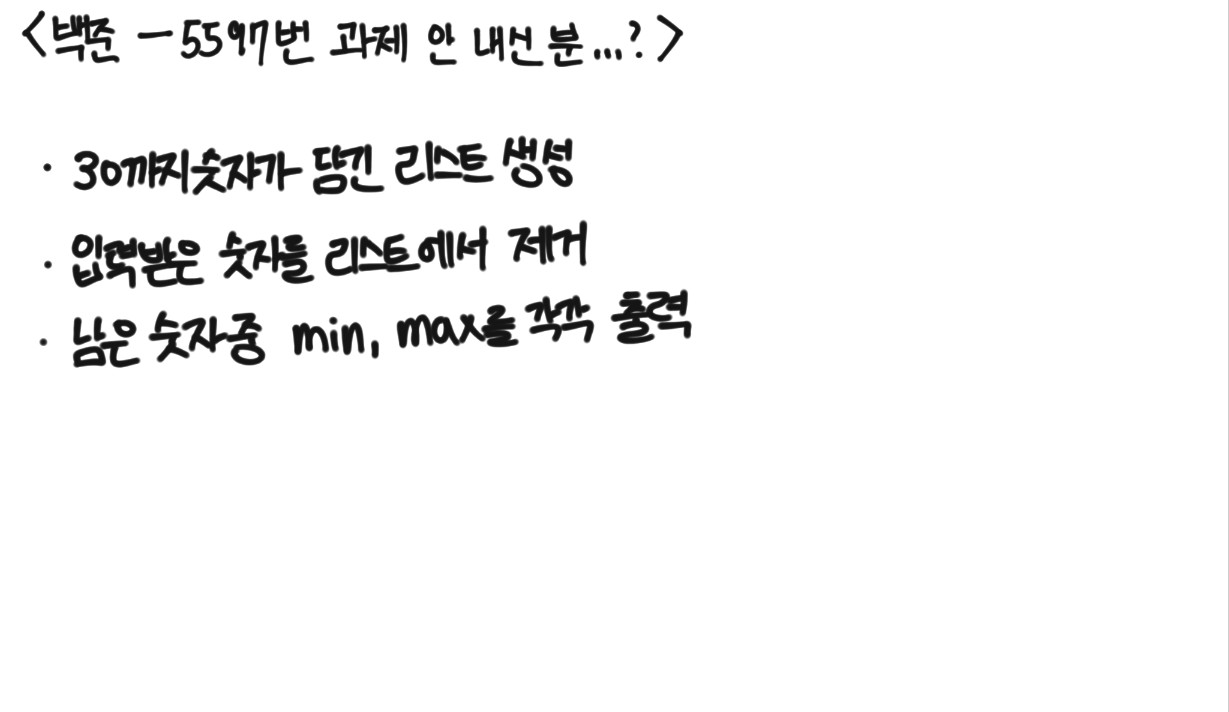 <백준 - 5597번 과제 안 내신 분...?>
· 30까지숫자가 담긴 리스트 생성
· 입력받은 숫자를 리스트에서 제거
· 남은 숫자중 min, max를 각각 출력